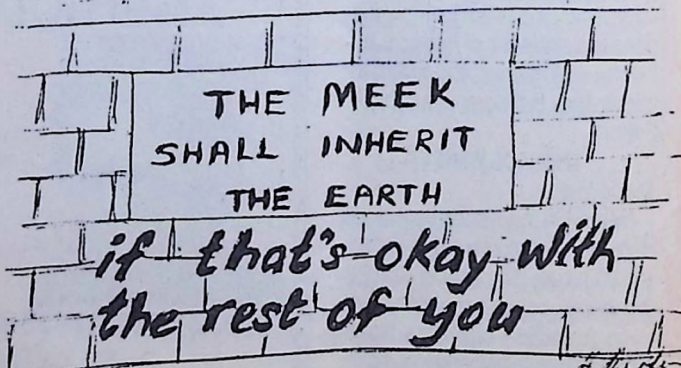 THE MEEK
SHALL INHERIT
THE EARTH
if that's okay with
the rest of you